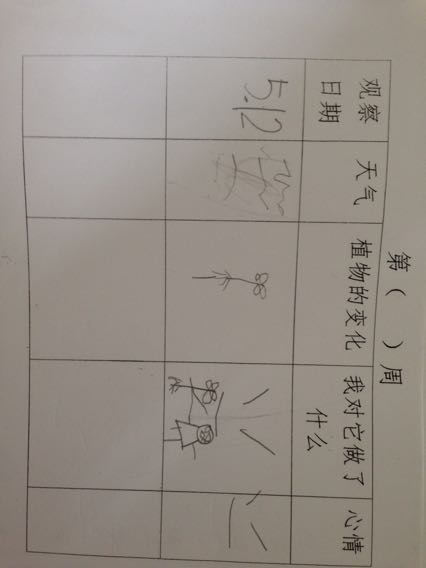 第（ ）周
观察
日期
天气
植物的变化
我对它做了
什么
心情
5.12